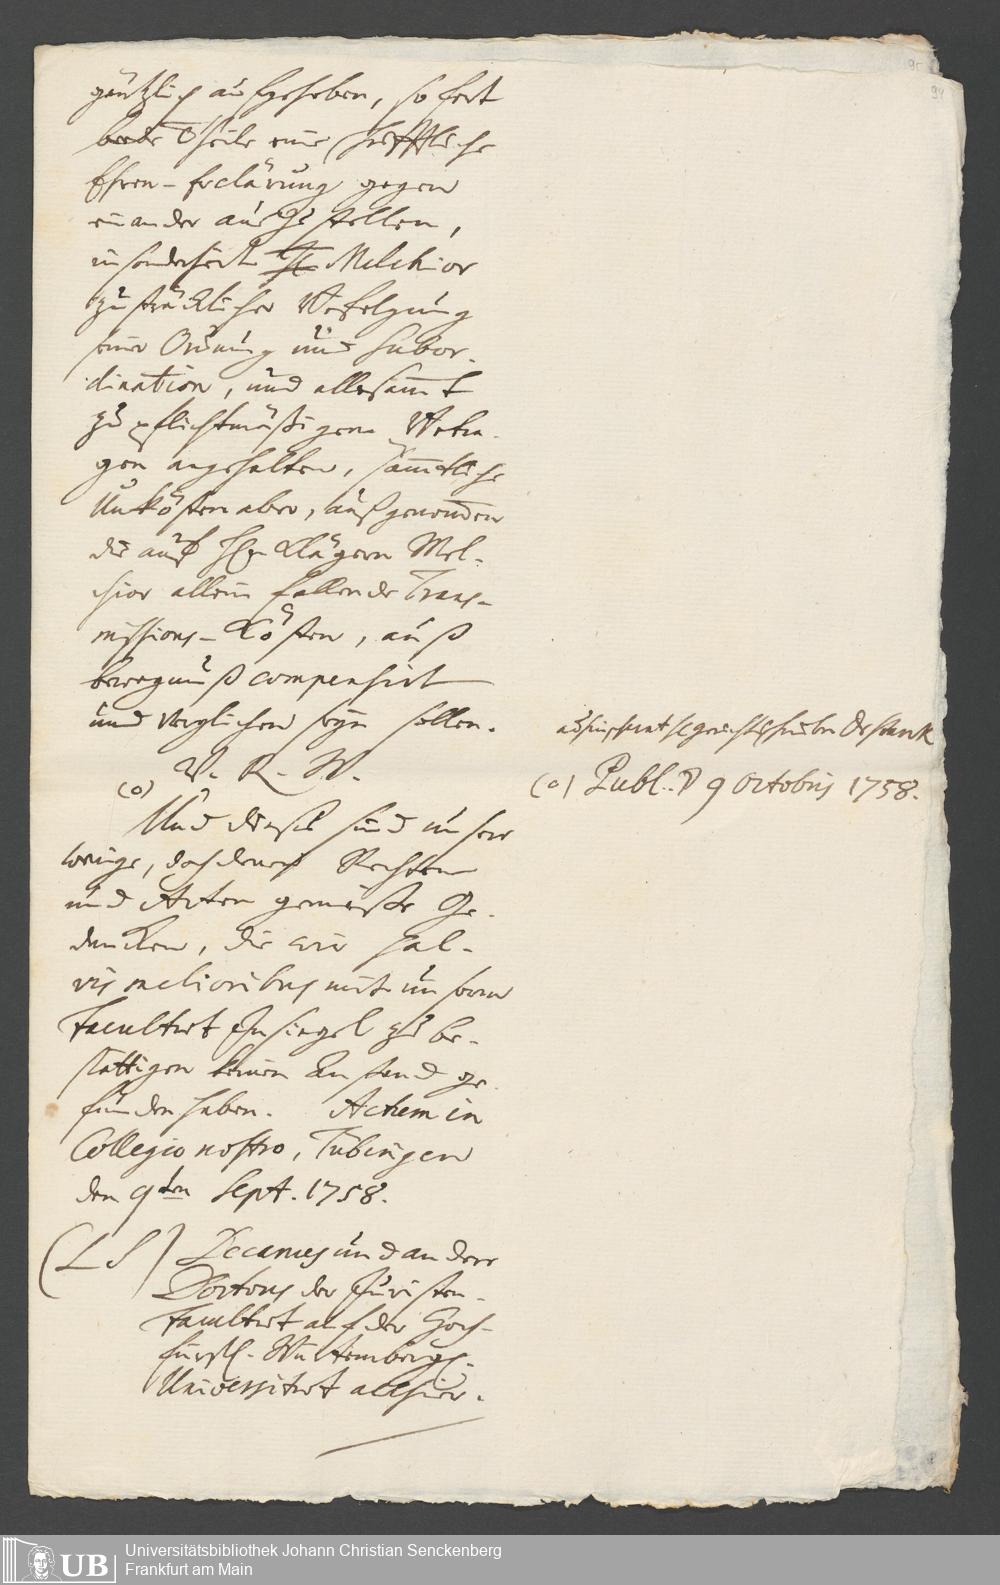 gäntzlich aufgehoben, so fort
beede Theile eine schrifftliche
Ehren-Erclärung gegen
einander auszustellen,
insonderheit H. Melchior
zu sträcklicher Befolgung
seiner Ordnung und Subor-
dination, und allesamt
zu pflichtmäßigem Betra-
gen angehalten, sämmtliche
Unkösten aber, außgenommen
die auf Hn. Klägern Mel-
chior allein fallende Trans-
missions-Kösten, auß
bewegnuß compensirt
und verglichen seyn sollen.
V. R. W.
(o)
Und dieses sind unsere
wenige, doch denen Rechten
und Acten gemäße Ge-
dancken, die wir sal-
vis melioribus mit unserm
Facultaet Insiegel zu be-
stättigen keinen Anstand ge-
funden haben. Actum in
Collegio nostro, Tübingen
den 9ten Sept. 1758.
(L S) Decanus und andere
Doctores der Juristen-
Facultaet auf der Hoch-
fürstl. Würtembergl.
Universitaet allhier.
(o) Publ. d 9 Octobris 1758.
94
Universitätsbibliothek Johann Christian Senckenberg
Frankfurt am Main
UB